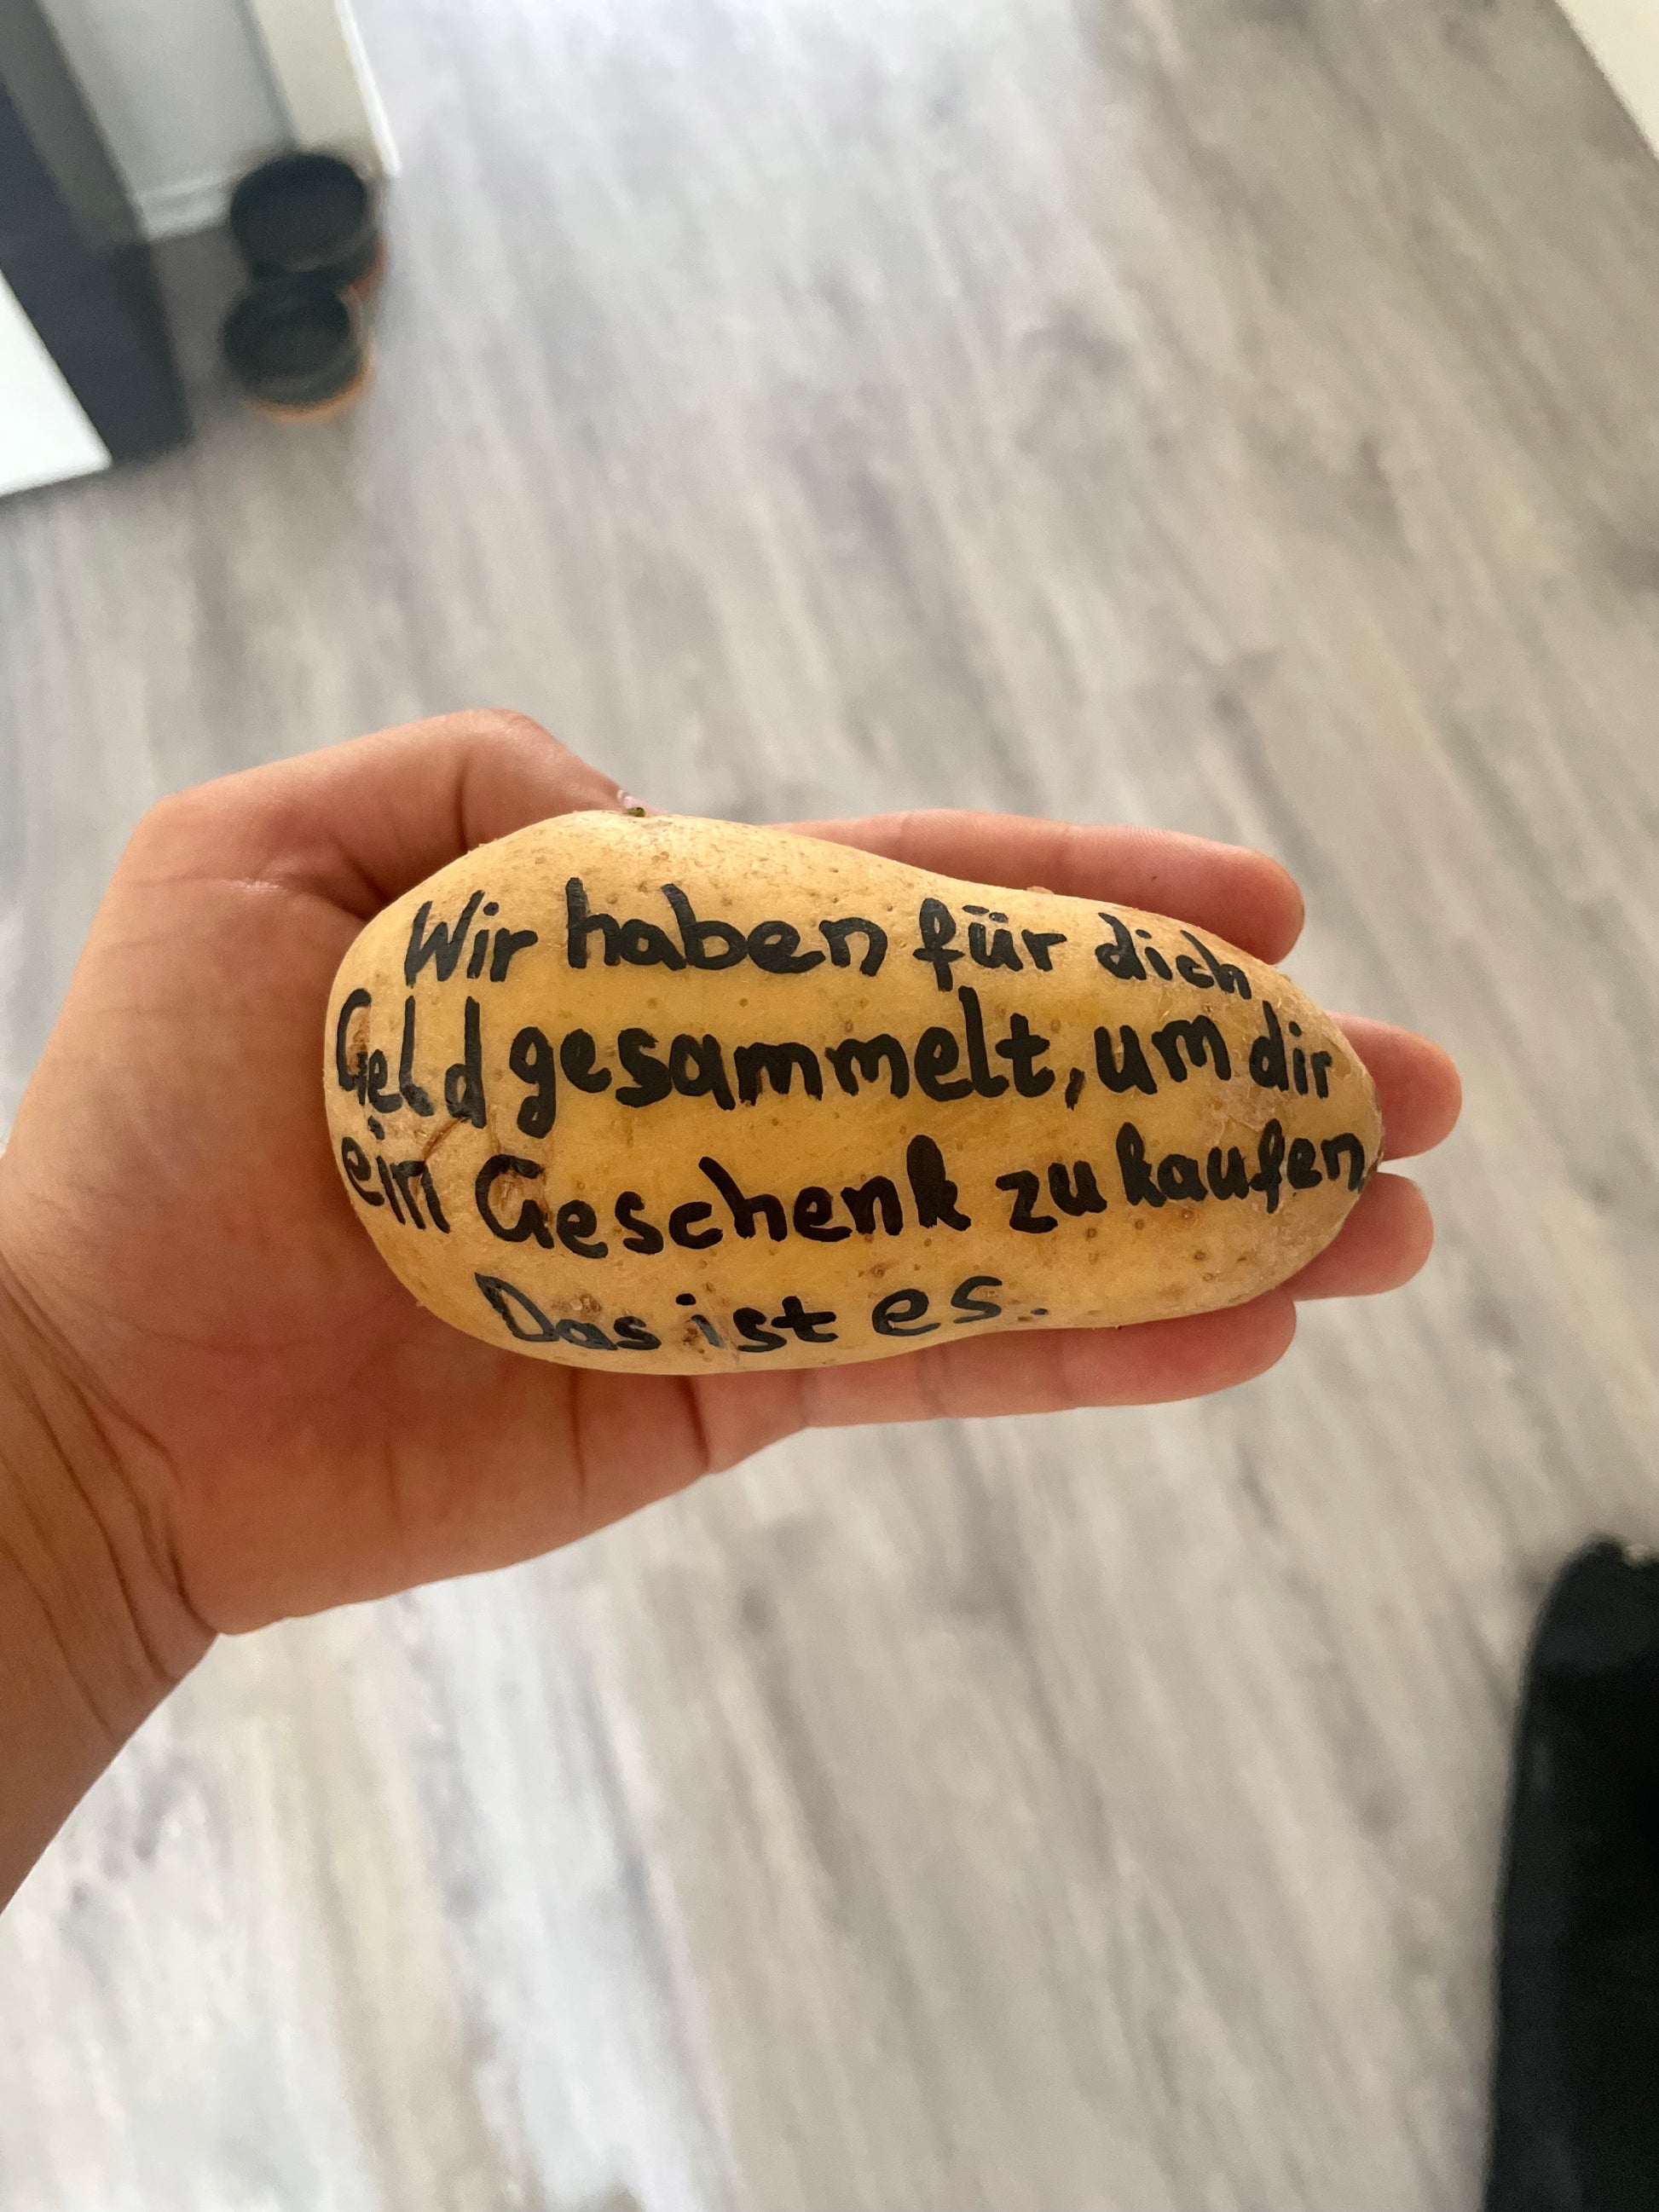 Wir haben für dich
Geld gesammelt, um dir
ein Geschenk zu kaufen.
Das ist es.